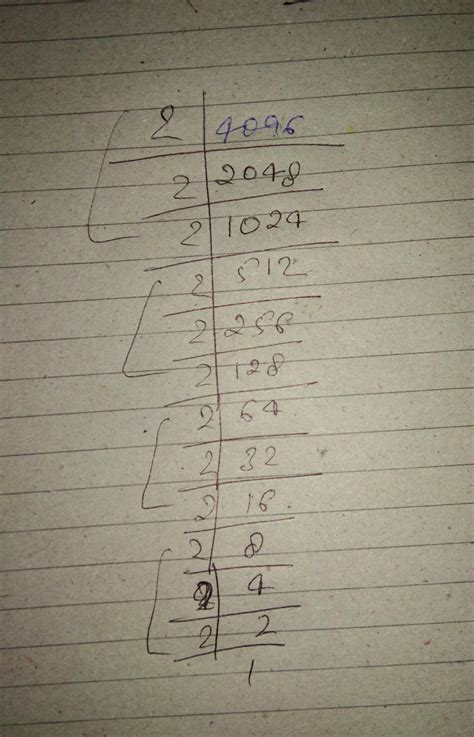 2 4096
2 2048
2 1024
2 512
2 256
2 128
2 64
2 32
2 16
2 8
2 4
2 2
1